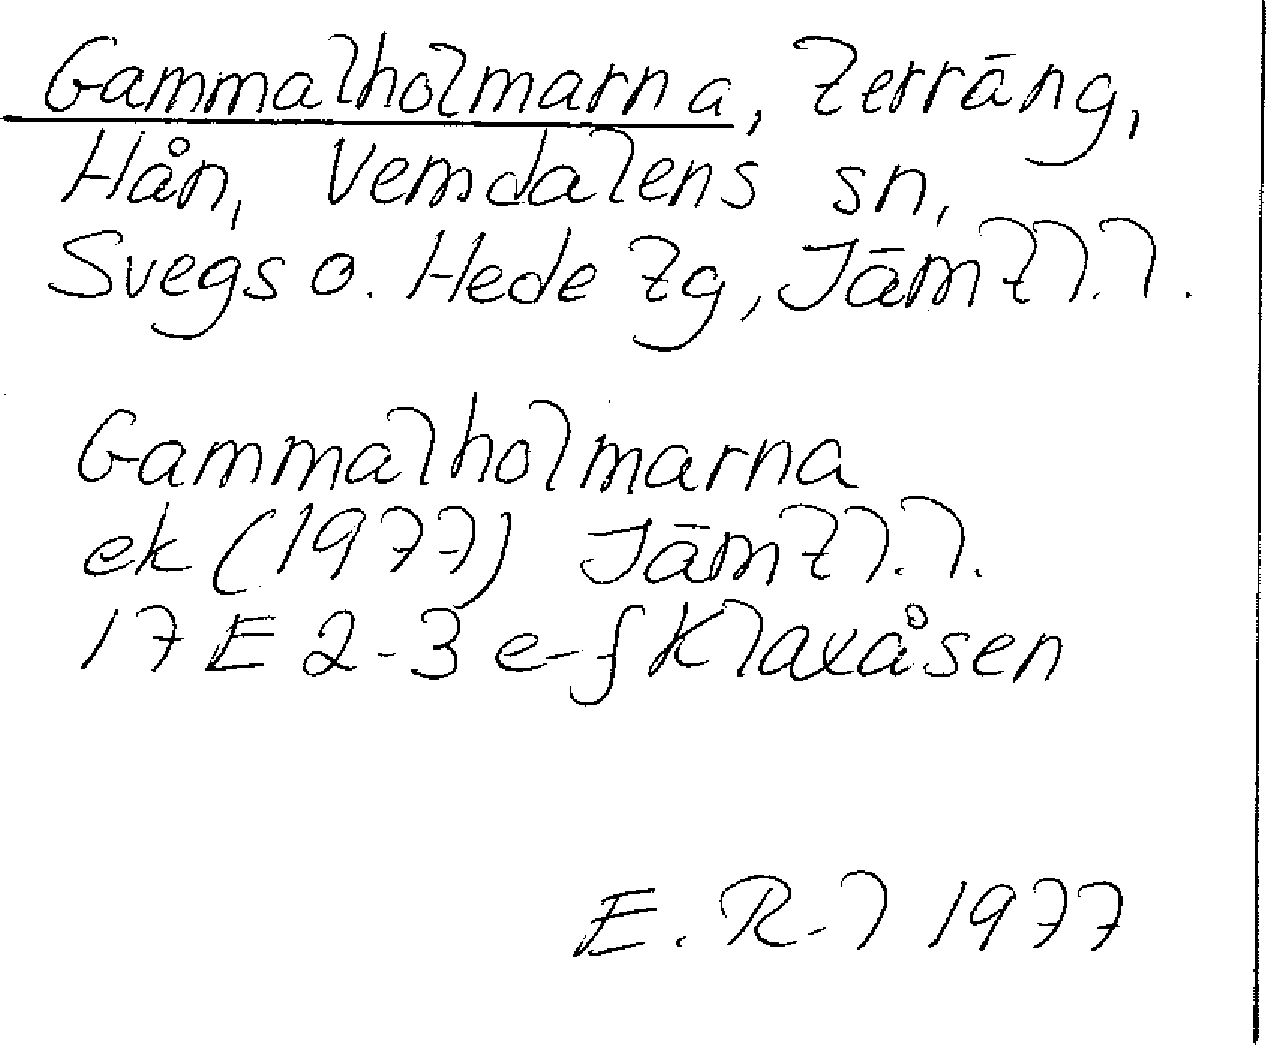 Gammalholmarna, terräng,
Hån, Vemdalens sn,
Svegs o. Hede tg, Jämtl.l.
Gammalholmarna
ek (1977) Jämtl.l.
17E 2-3 e-f Klaxåsen
E. R-l 1977